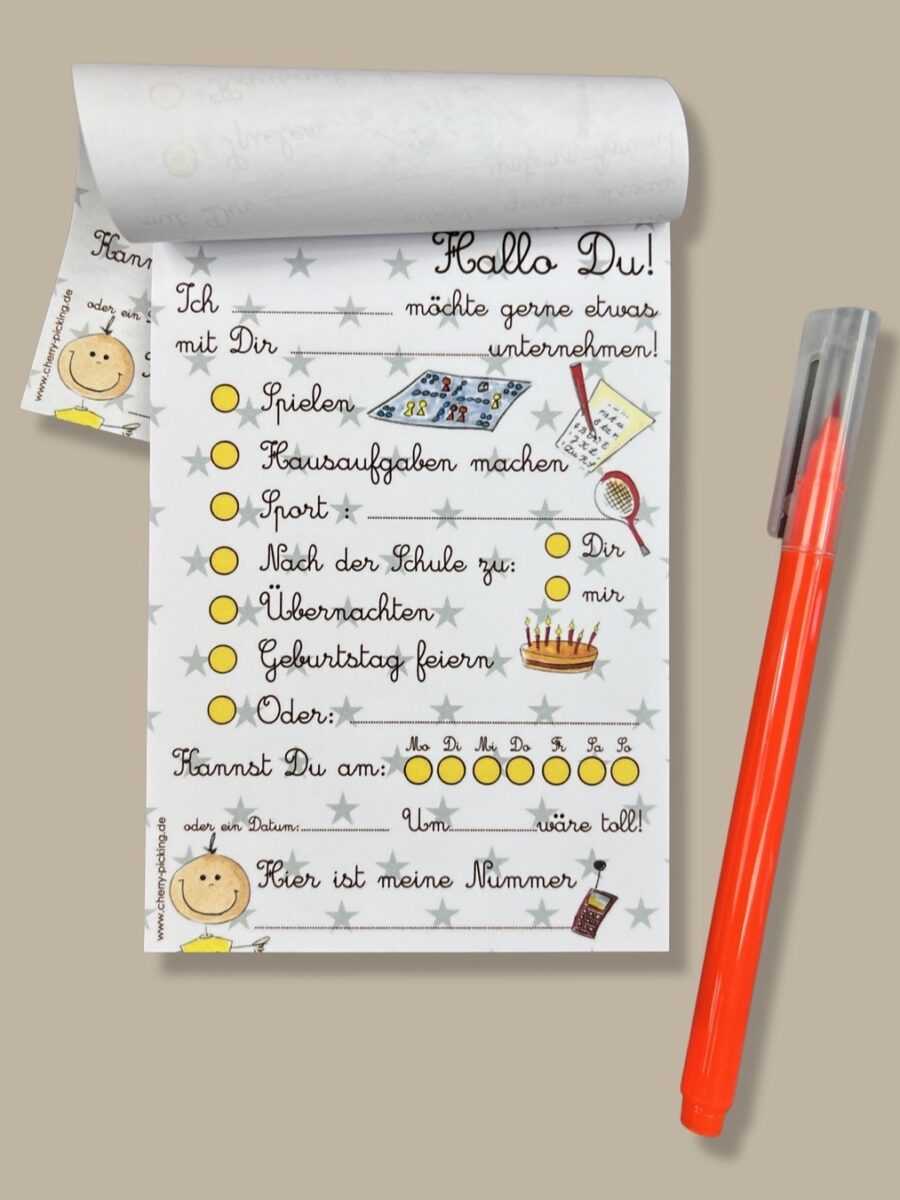 Hallo Du!
Ich ........................ möchte gerne etwas
mit Dir ........................ unternehmen!
Spielen
Hausaufgaben machen
Sport : ........................
Nach der Schule zu:
Dir
mir
Übernachten
Geburtstag feiern
Oder: ........................
Mo Di Mi Do Fr Sa So
Kannst Du am:
oder ein Datum: ............ Um ............ wäre toll!
Hier ist meine Nummer
www.cherry-picking.de
Kann
oder ein
www.cherry-picking.de